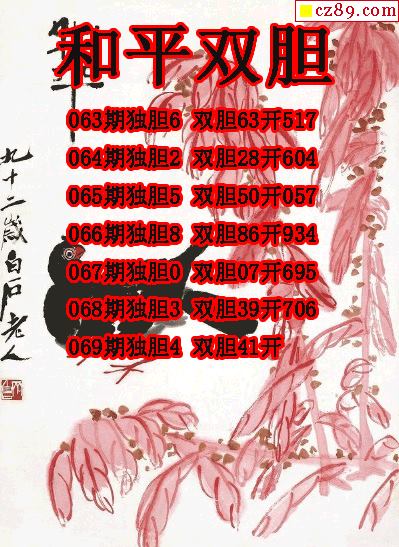 cz89.com
和平双胆
063期独胆6 双胆63开517
064期独胆2 双胆28开604
065期独胆5 双胆50开057
066期独胆8 双胆86开934
067期独胆0 双胆07开695
068期独胆3 双胆39开706
069期独胆4 双胆41开
九十二岁白石老人